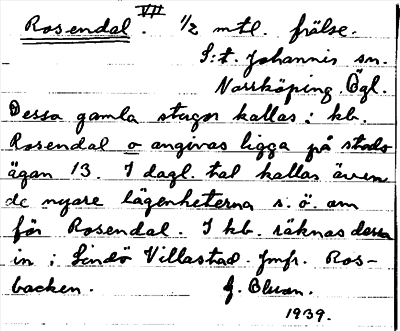 Rosendal. VII 1/2 mtl. frälse.
S:t. Johannis sn.
Norrköping, Ögl.
Dessa gamla stugor kallas i kb.
Rosendal o angivas ligga på stads
ägan 13. I dagl. tal kallas även
de nyare lägenheterna s. ö. om
för Rosendal. I kb. räknas dessa
in i Lindö Villastad. Jmfr. Ros-
backen.
1939.